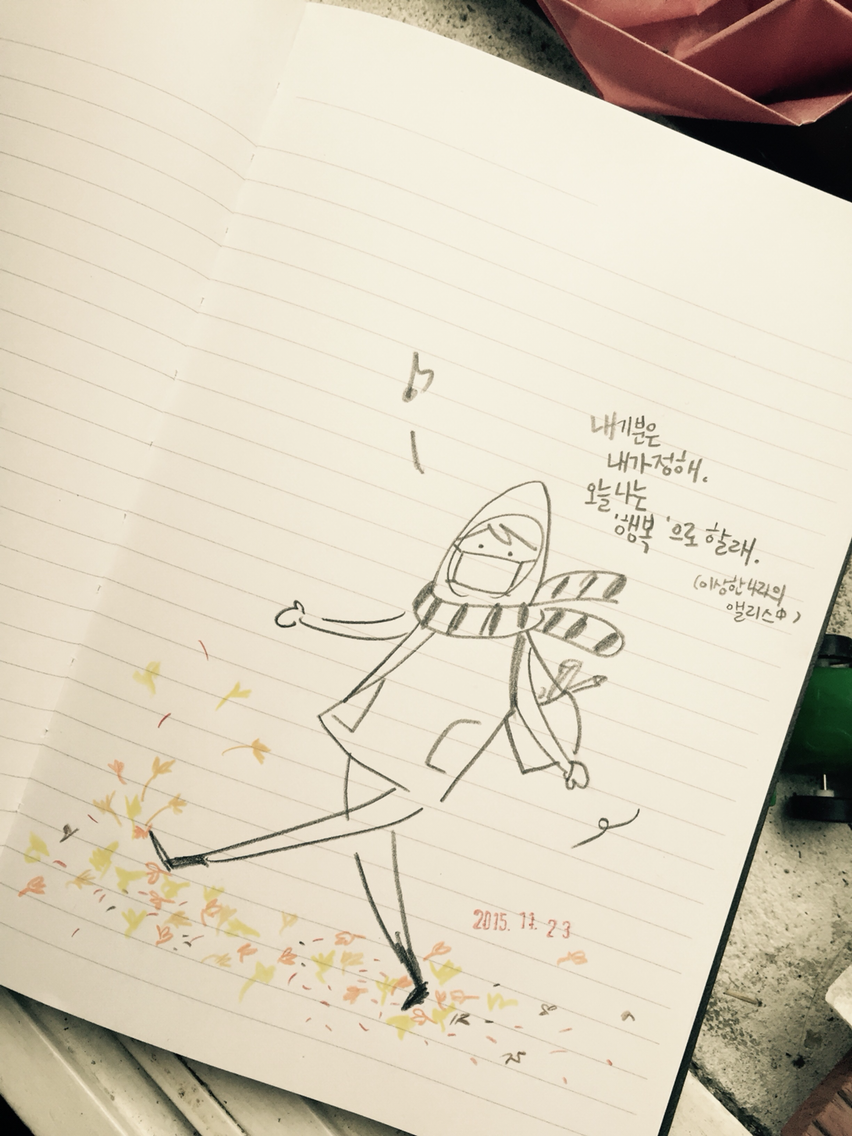 내기분은
내가정해.
오늘나는
'행복'으로 할래.
(이상한나라의
앨리스中)
2015. 11. 23